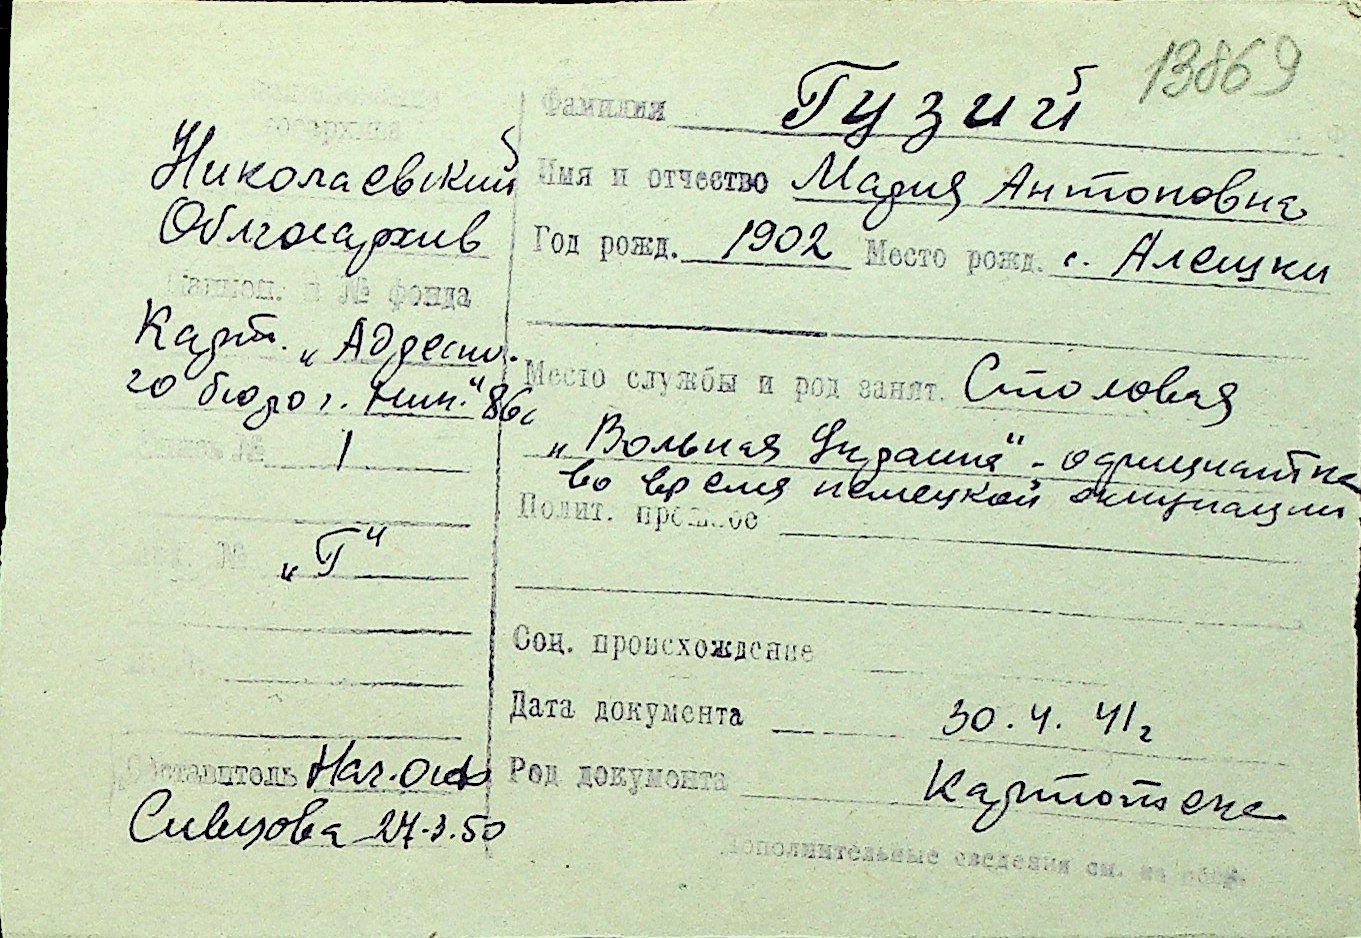 13869
Фамилия Гузий
Имя и отчество Мария Антоновна
Год рожд. 1902 Место рожд. с. Алешки
Место службы и род занят. Столовая
„Вольная Украина" - официантка
во время немецкой оккупации
Полит. прошлое
Соц. происхождение
Дата документа 30.4.41г
Род документа Картотека
Дополнительные сведения см. на обор.
Николаевский
Облгосархив
№ фонда
Карт. „Адресно-
го бюро г. Ник." 86с
Опись № 1
№ „Г"
Составитель Нач. ОИФ
Сивцова 27.3.50